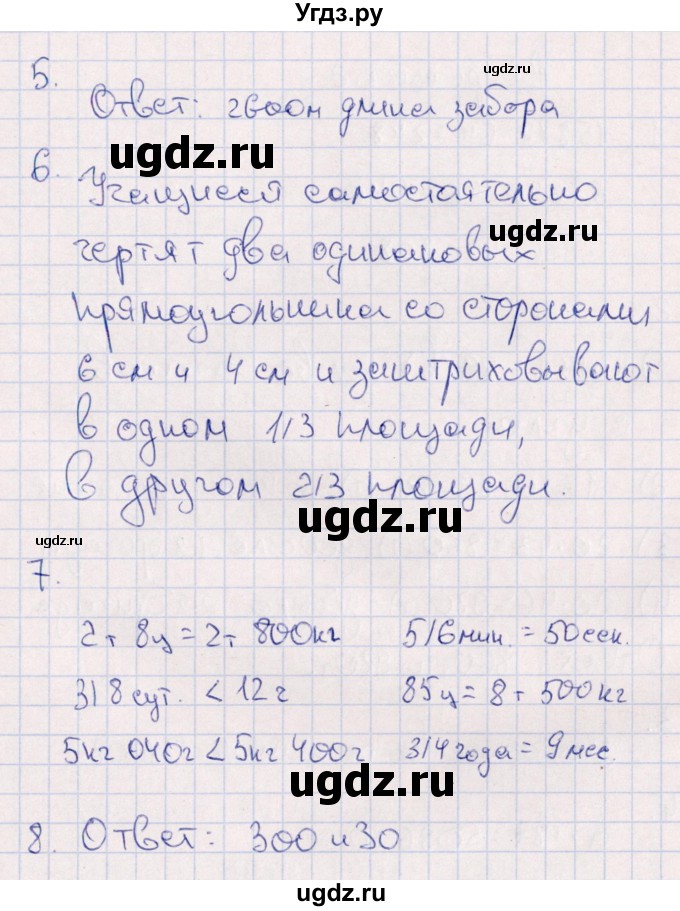 Угдз.ру
ugdz.ru
5.
Ответ: 2600м длина забора
ugdz.ru
6. Учащиеся самостоятельно
ugdz.ru
чертят два одинаковых
прямоугольника со сторонами
6 см и 4 см и заштриховывают
в одном 1/3 площади,
в другом 2/3 площади.
ugdz.ru
ugdz.ru
7.
2т 8ц = 2т 800кг 5/6 мин. = 50 сек.
3/8 сут. < 12 ч 85ц = 8т 500кг
5кг 040г < 5кг 400г 3/4 года = 9 мес.
ugdz.ru
8. Ответ: 300 и 30
ugdz.ru